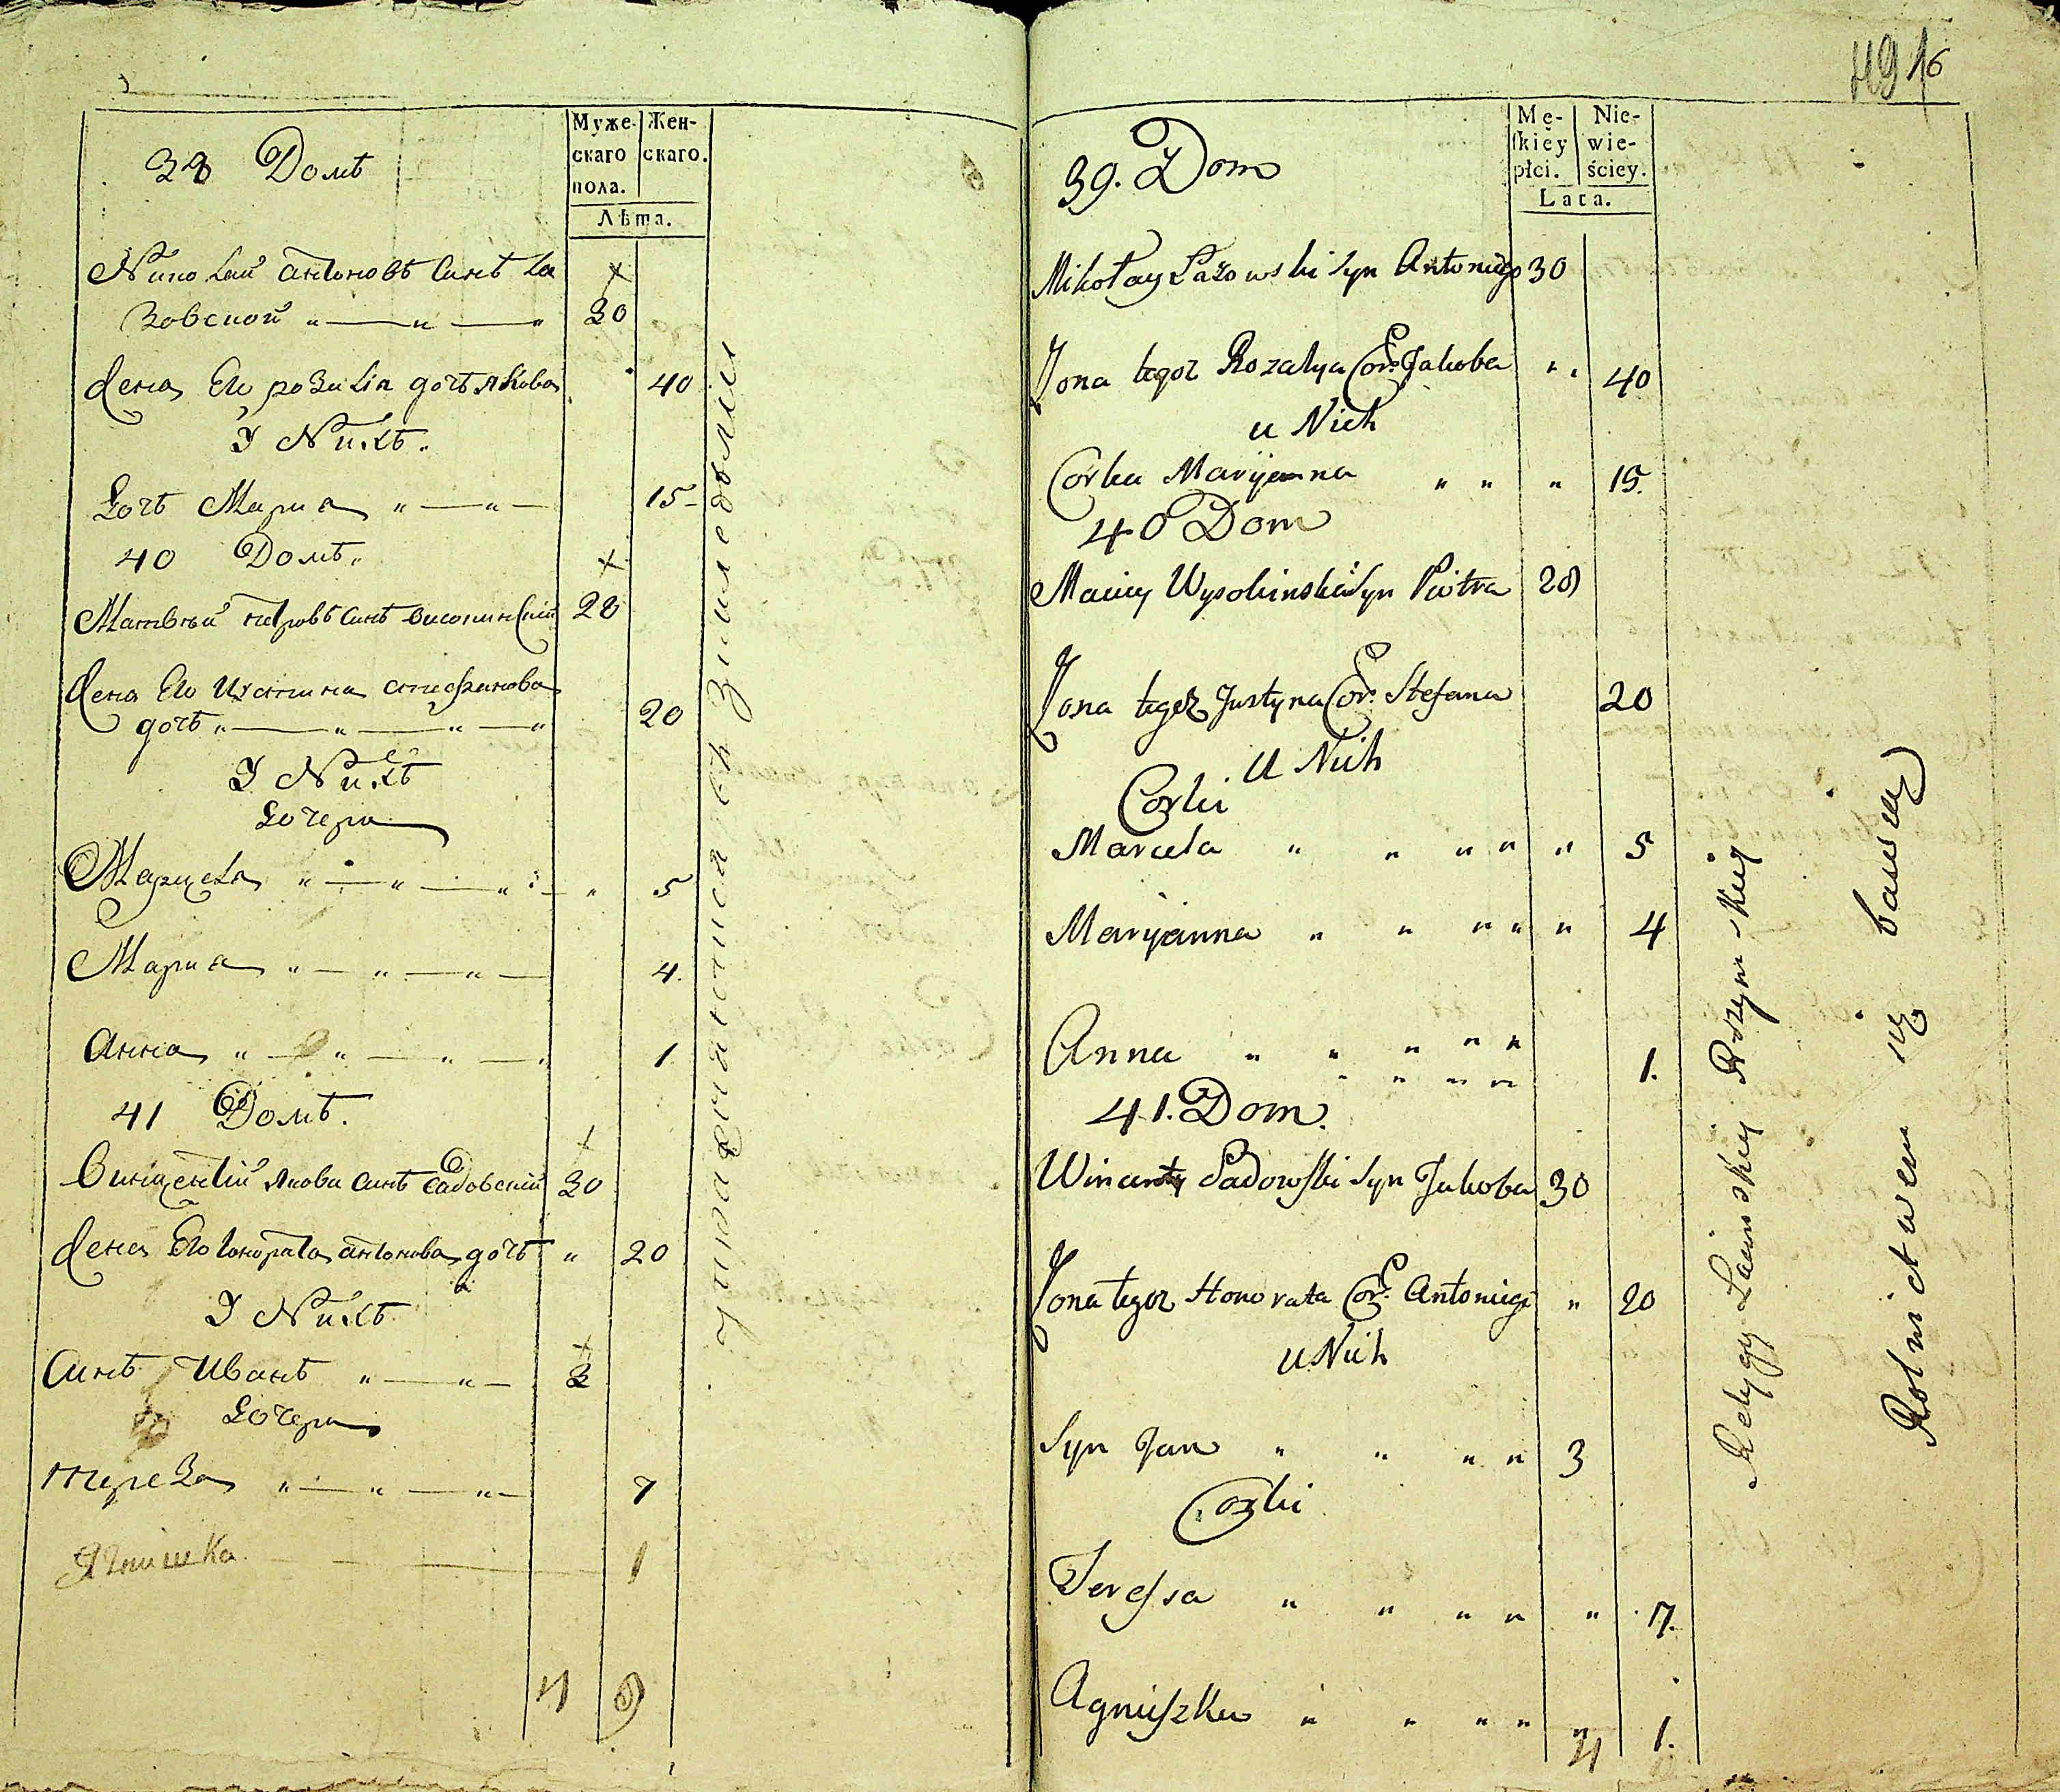 4916
Муже-
скаго
пола.
Жен-
скаго.
Лѣта.
39 Домъ
Николай Антоновъ синъ Ла
зовской 30
Жена Его розалія дочь Якова 40
У Нихъ.
Дочь Мариа 15
40 Домъ
Матвѣй петровъ синъ високинскій 28
Жена Его Иустина стефанова
дочь 20
У Нихъ
Дочери
Марцела 5
Мариа 4.
Анна 1
41 Домъ.
Винцентій Якова синъ Садовскій 30
Жена Его Гонората Антонова дочь " 20
У Нихъ
Синъ Иванъ 3
Дочери
тереза 7
Ягнишка 1
4 9
упражняются въ земледѣліи
Mę-
skiey
płci.
Nie-
wie-
ściey.
Lata.
39. Dom
Mikołay Łazowski Syn Antoniego 30
Żona tegoż Rozalya Cór. Jakoba " 40
u Nich
Córka Maryanna " " " 15.
40 Dom
Maciey Wysokinski Syn Piotra 28
Żona tegoż Justyna Cór. Stefana 20
U Nich
Corki
Marcela " " " " " 5
Maryanna " " " " " 4
Anna " " " " " 1.
41. Dom.
Wincenty Sadowski Syn Jakoba 30
Żona tegoż Honorata Cór. Antoniego " 20
U Nich
Syn Jan " " " " 3
Corki
Teressa " " " " " 7.
Agniszka " " " " 1.
4
Religyi Łacinskiey Rzymskiey
Rolnictwem się bawią